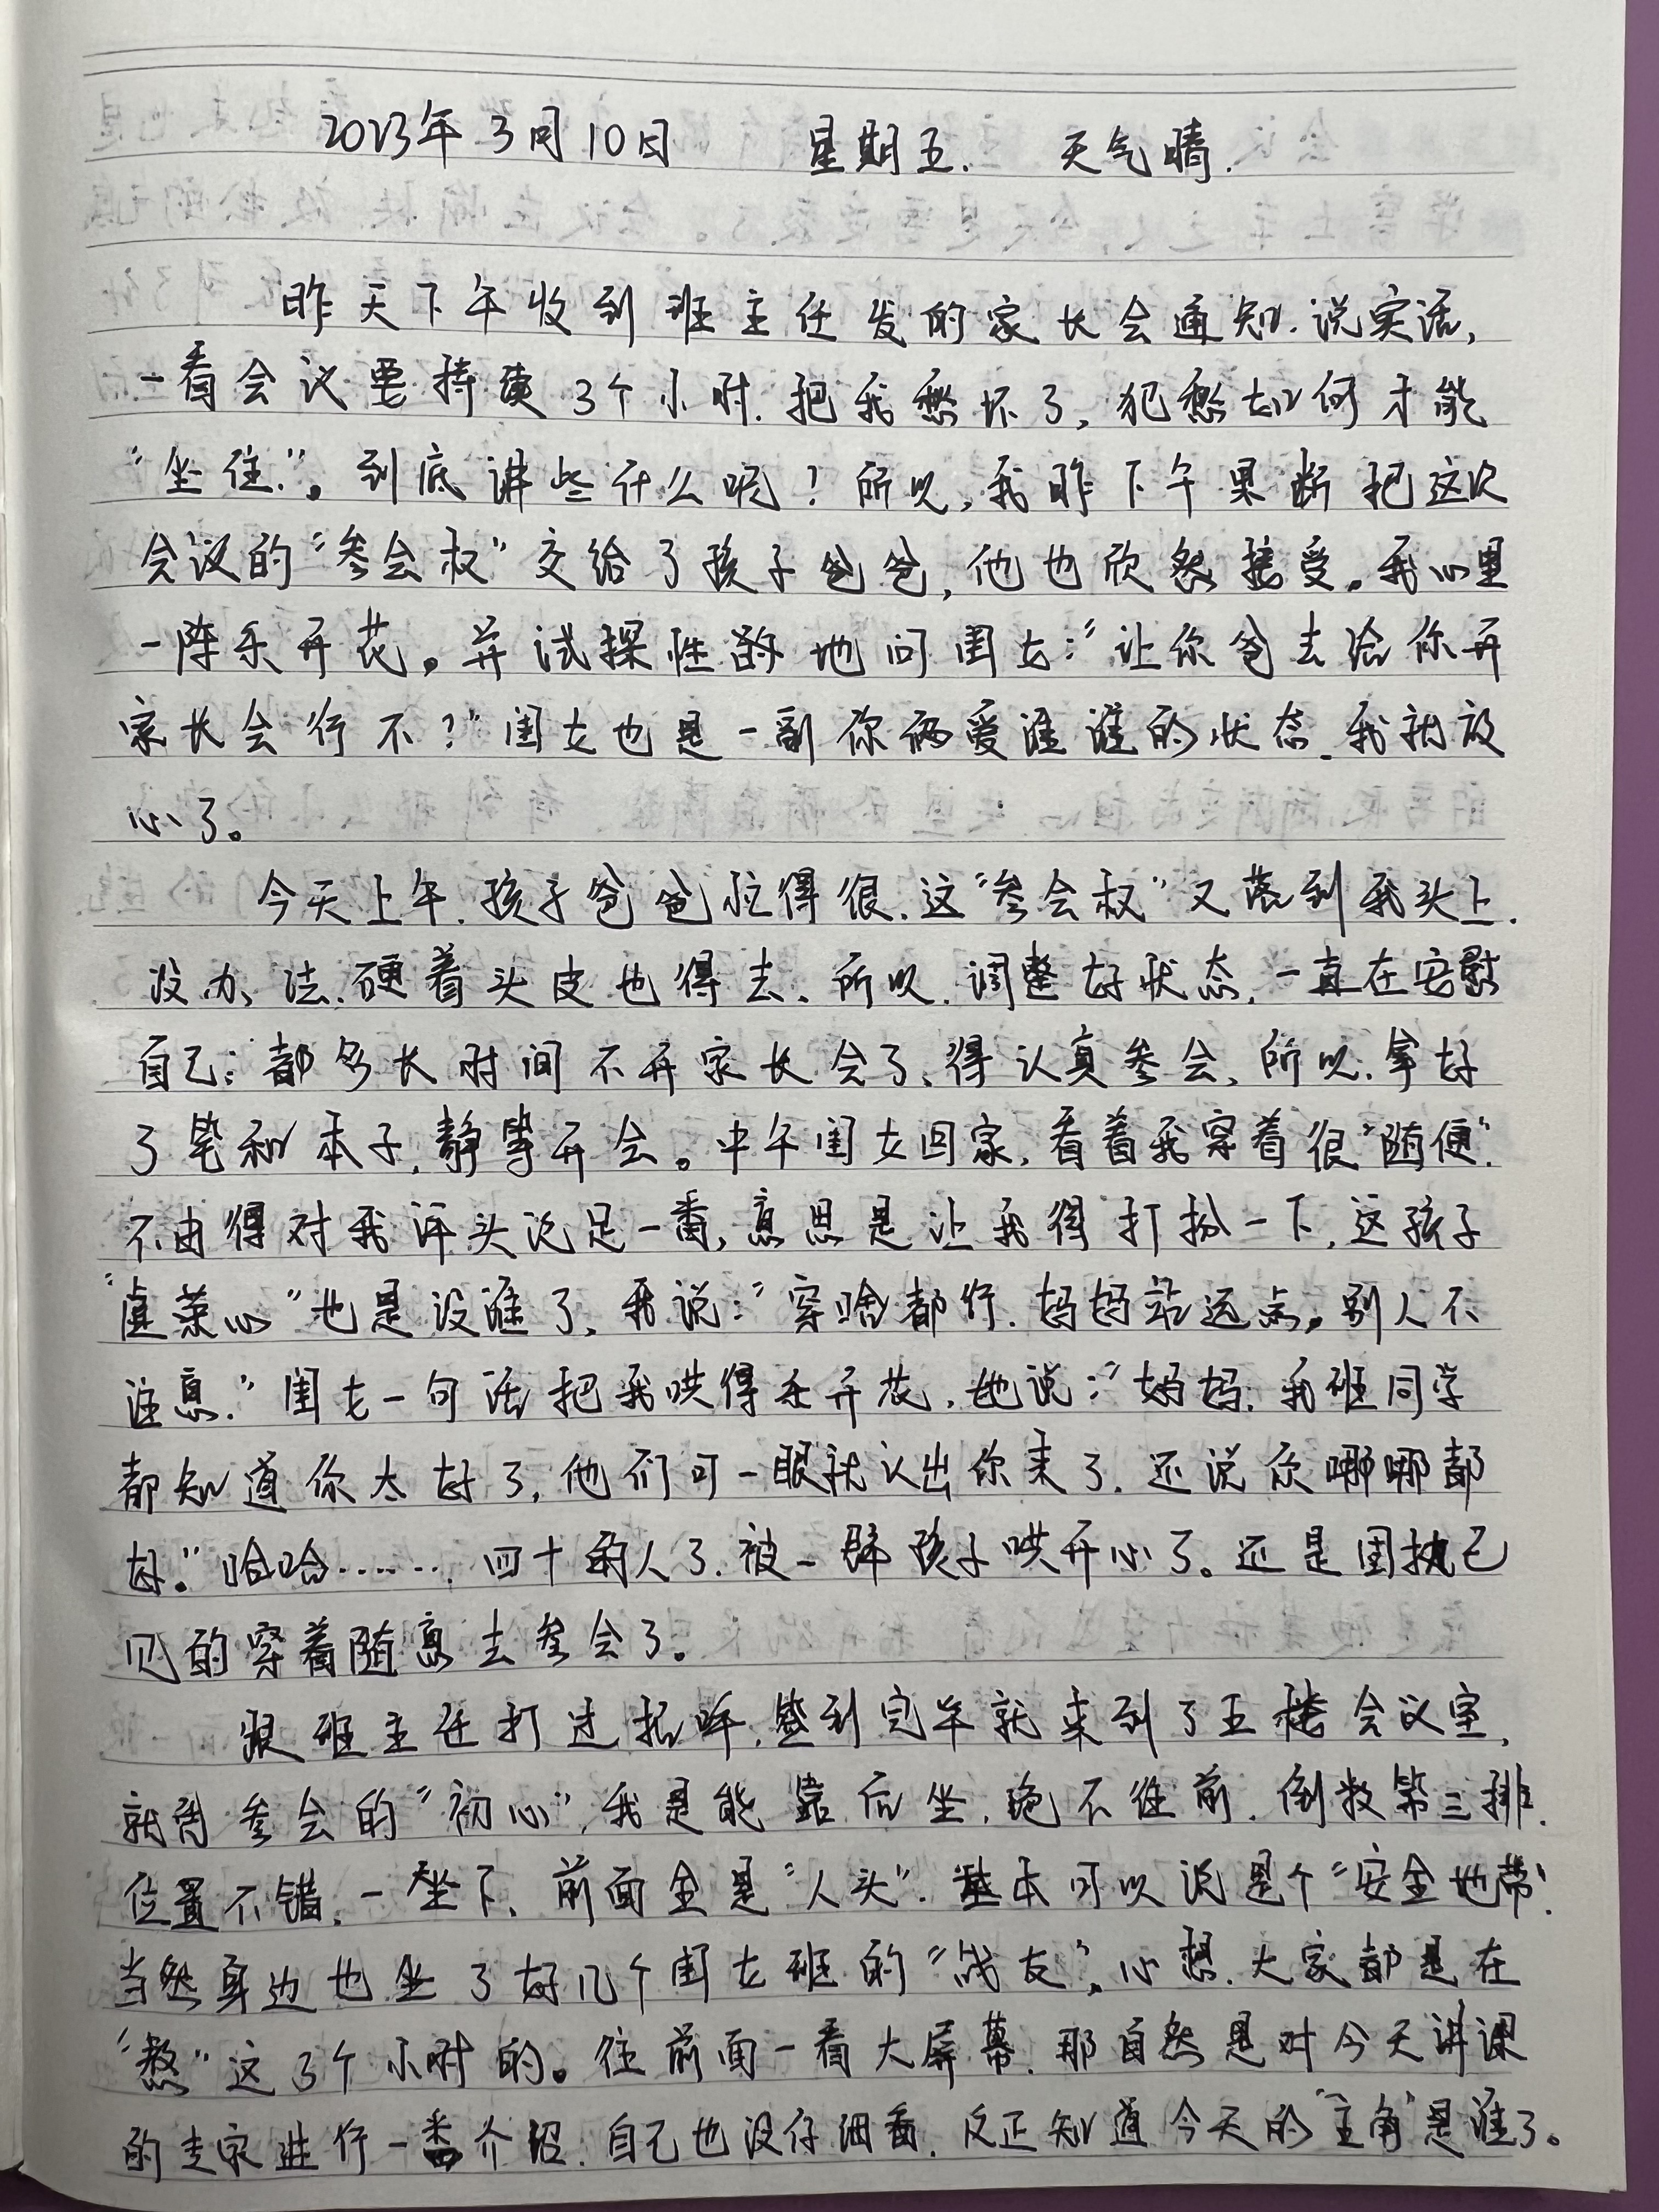 2023年3月10日 星期五. 天气晴.
昨天下午收到班主任发的家长会通知.说实话,
一看会议要持续3个小时.把我愁坏了,犯愁如何才能
“坐住.”。到底讲些什么呢?所以,我昨下午果断把这次
会议的“参会权”交给了孩子爸爸,他也欣然接受。我心里
一阵乐开花。并试探性的地问闺女:“让你爸去给你开
家长会行不?”闺女也是一副你俩爱谁谁的状态.我就放
心了。
今天上午.孩子爸爸忙得很.这“参会权”又落到我头上.
没办法.硬着头皮也得去.所以.调整好状态,一直在安慰
自己:都多长时间不开家长会了,得认真参会,所以.拿好
了笔和本子,静等开会。中午闺女回家,看着我穿着很“随便”.
不由得对我评头论足一番,意思是让我得打扮一下,这孩子
“虚荣心”也是没谁了,我说:“穿啥都行.妈妈站远点。别人不
注意.”闺女一句话把我哄得乐开花,她说:“妈妈.我班同学
都知道你太好了,他们可一眼就认出你来了.还说你哪哪都
好。”哈哈…….四十的人了.被一群孩子哄开心了。还是固执己
见的穿着随意去参会了。
跟班主任打过招呼.签到完毕就来到了五楼会议室,
就冲参会的“初心”,我是能靠后坐,绝不往前.倒数第三排.
位置不错.一坐下、前面全是“人头”.基本可以说是个“安全地带”.
当然身边也坐了好几个闺女班的“战友”。心想.大家都是在
“熬”这3个小时的。往前面一看大屏幕.那自然是对今天讲课
的专家进行一番介绍.自己也没仔细看.反正知道今天的“主角”是谁了。